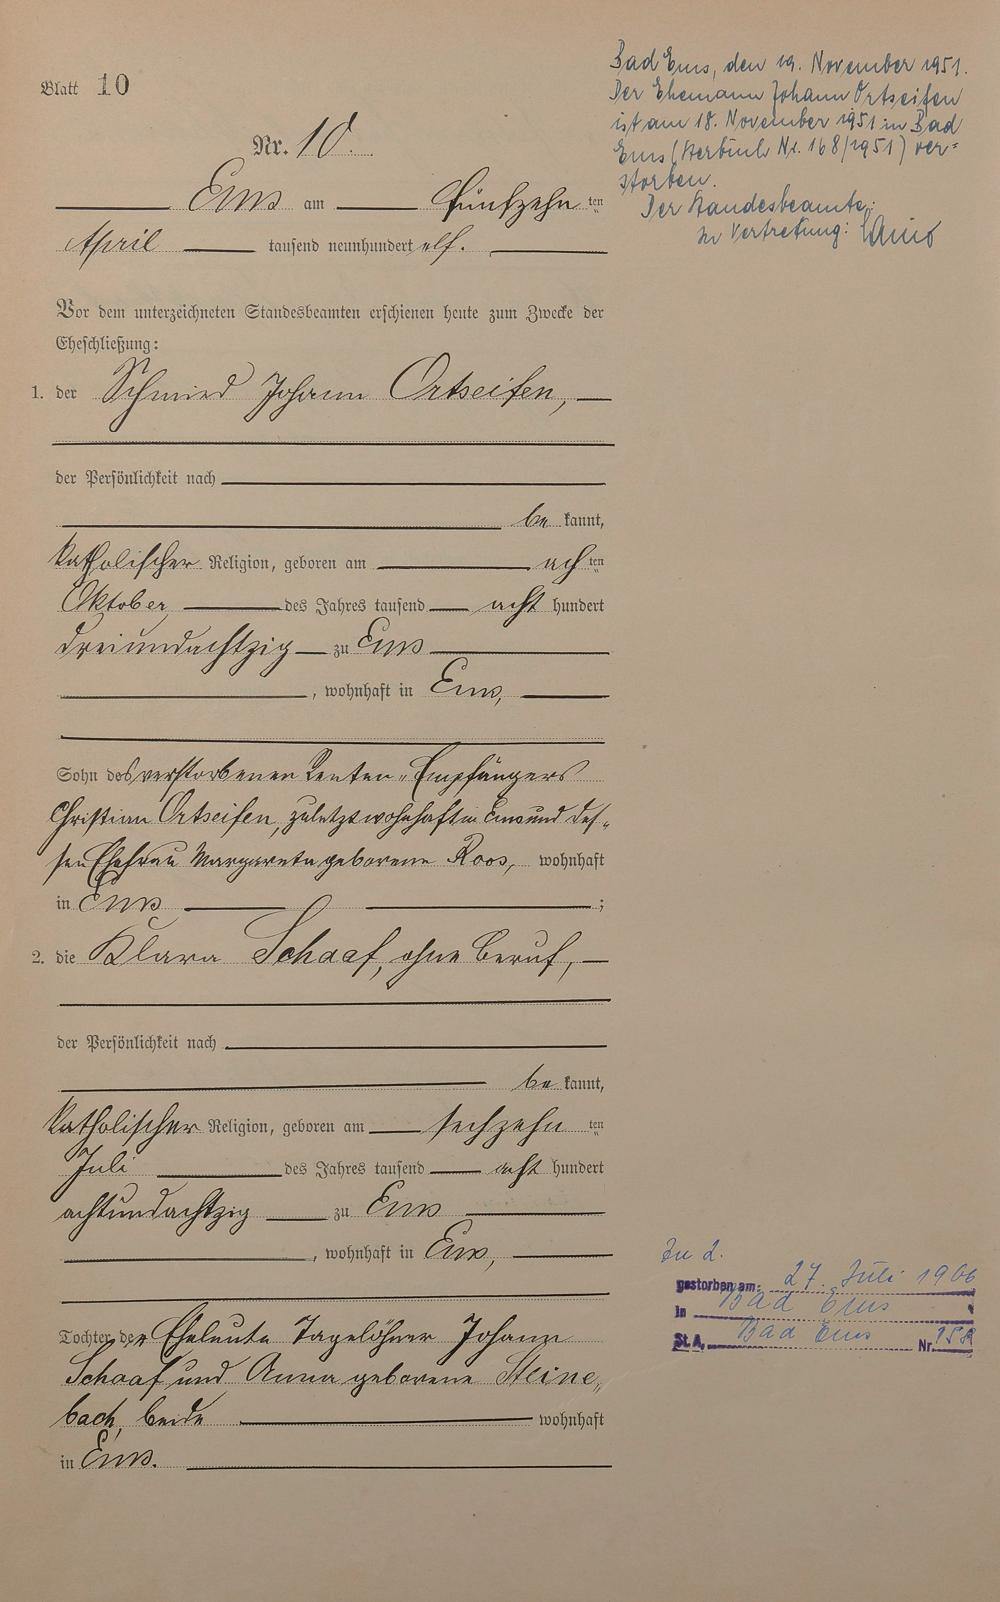 Blatt 10
Nr. 10.
Ems am fünfzehn ten
April tausend neunhundert elf.
Vor dem unterzeichneten Standesbeamten erschienen heute zum Zwecke der
Eheschließung:
1. der Schmied Johann Ortseifen,
der Persönlichkeit nach
be kannt,
katholischer Religion, geboren am ach ten
Oktober des Jahres tausend acht hundert
dreiundachtzig zu Ems
, wohnhaft in Ems,
Sohn des verstorbenen Renten-Empfängers
Christian Ortseifen, zuletzt wohnhaft in Ems und des-
sen Ehefrau Margareta geborene Roos, wohnhaft
in Ems ;
2. die Klara Schaaf, ohne Beruf,
der Persönlichkeit nach
be kannt,
katholischer Religion, geboren am sechzehn ten
Juli des Jahres tausend acht hundert
achtundachtzig zu Ems
, wohnhaft in Ems,
Tochter der Eheleute Tagelöhner Johann
Schaaf und Anna geborene Steine-
bach, beide wohnhaft
in Ems.
Bad Ems, den 19. November 1951.
Der Ehemann Johann Ortseifen
ist am 18. November 1951 in Bad
Ems (Sterbbuch Nr. 168/1951) ver-
storben.
Der Standesbeamte:
In Vertretung:
Zu 2.
gestorben am: 27. Juli 1966
in Bad Ems
St. A. Bad Ems Nr. 158